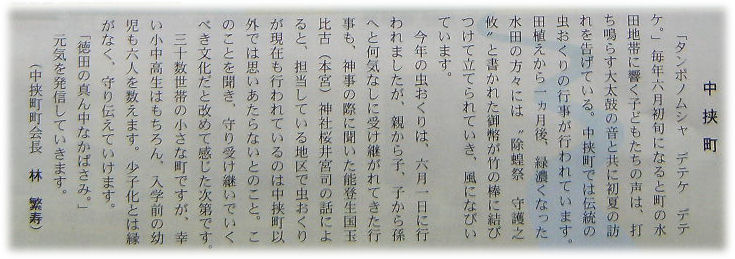 中挾町
「タンボノムシャ デテケ デテ
ケ。」毎年六月初旬になると町の水
田地帯に響く子どもたちの声は、打
ち鳴らす大太鼓の音と共に初夏の訪
れを告げている。中挾町では伝統の
虫おくりの行事が行われています。
田植えから一ヵ月後、緑濃くなった
水田の方々には〝除蝗祭 守護之
攸〟と書かれた御幣が竹の棒に結び
つけて立てられていき、風になびい
ています。
今年の虫おくりは、六月一日に行
われましたが、親から子、子から孫
へと何気なしに受け継がれてきた行
事も、神事の際に聞いた能登生国玉
比古(本宮)神社桜井宮司の話によ
ると、担当している地区で虫おくり
が現在も行われているのは中挾町以
外では思いあたらないとのこと。こ
のことを聞き、守り受け継いでいく
べき文化だと改めて感じた次第です。
三十数世帯の小さな町ですが、幸
い小中高生はもちろん、入学前の幼
児も六人を数えます。少子化とは縁
がなく、守り伝えていけます。
「徳田の真ん中なかばさみ。」
元気を発信していきます。
(中挾町町会長 林 繁寿)